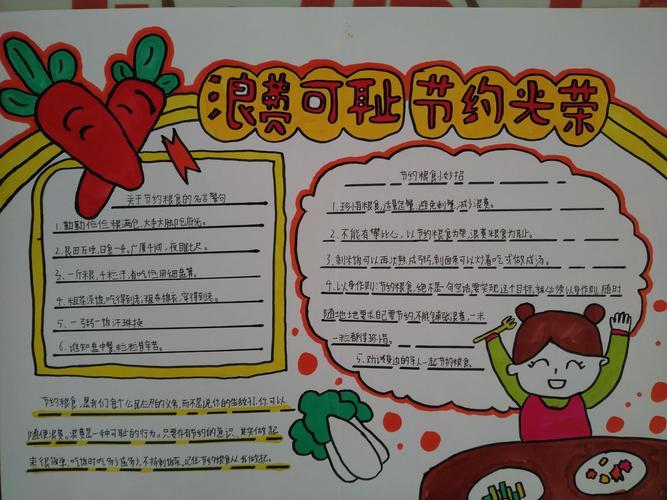 浪费可耻 节约光荣
关于节约粮食的名言警句
1.勤勤俭俭粮满仓,大手大脚仓底光。
2.良田百顷,日食一升。广厦千间,夜眠七尺。
3.一斤粮,千粒汗,省吃俭用细盘算。
4.粗茶淡饭,吃得到老;粗布棉衣,穿得到老。
5.一粥一饭汗珠换
6.谁知盘中餐,粒粒皆辛苦。
节约粮食小妙招
1.珍惜粮食,适量定餐,避免剩餐,减少浪费。
2.不能有攀比心,以节约粮食为荣,浪费粮食为耻。
3.剩米饭可以再次熬成粥,剩面条可以炒着吃或做成汤。
4.以身作则:节约粮食,绝不是一句空话要实现这个目标,就必须以身作则,随时
随地地要求自己要节约,不能铺张浪费,一米
一粒都得珍惜。
5.劝诫身边的亲人一起节约粮食。
节约粮食,是我们每个公民应尽的义务,而不是说你的生活好了,你可以
随便浪费。浪费是一种可耻的行为。只要你有节约的意识,其实做起
来很简单:吃饭时吃多少盛多少,不扔剩饭菜,记住节约粮食从我做起。